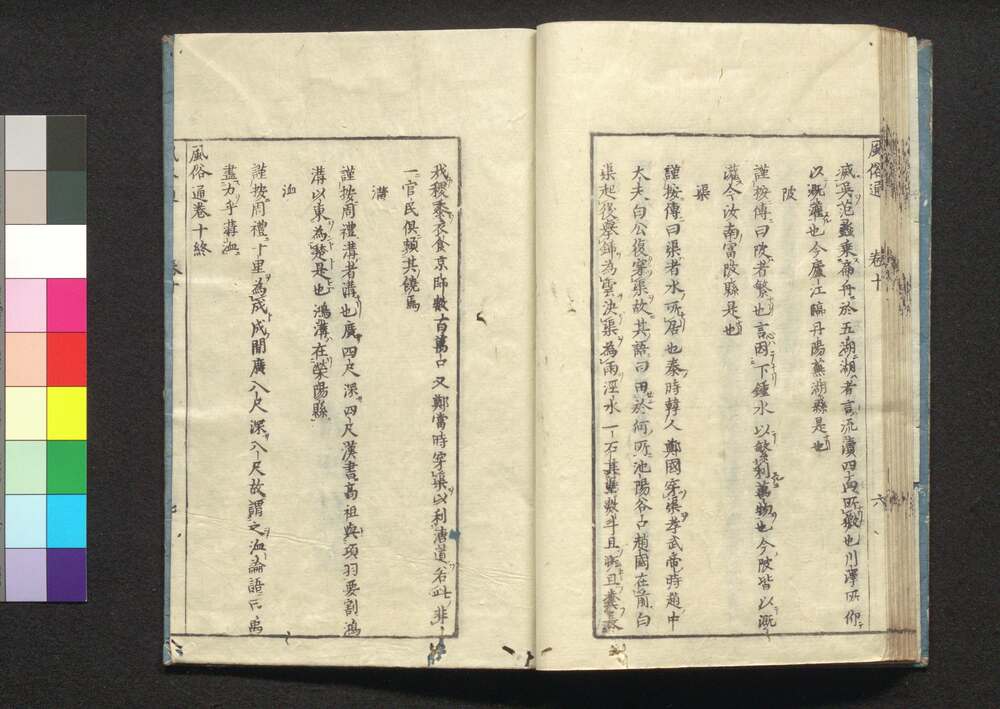 風俗通 卷十 六
滅吳范蠡乗扁舟於五湖湖者言流瀆四面所猥也川澤所仰
以溉灌也今廬江臨丹陽蕪湖縣是也
陂
謹按傳曰陂者繁也言因下鍾水以繁利萬物也今陂皆以溉
灌今汝南富陂縣是也
渠
謹按傳曰渠者水所居也秦時韓人鄭國穿渠孝武帝時趙中
大夫白公復穿渠故其語曰田於何所池陽谷口鄭國在前白
渠起後舉鍤為雲決渠為雨涇水一石其泥數斗且溉且糞長
我稷黍衣食京師數百萬口又鄭當時穿渠以利漕道若此非
一官民俱賴其饒焉
溝
謹按周禮溝者溝也廣四尺深四尺漢書高祖與項羽要割鴻
溝以東為楚是也鴻溝在滎陽縣
洫
謹按周禮十里為成成間廣八尺深八尺故謂之洫論語云禹
盡力乎溝洫
風俗通卷十終